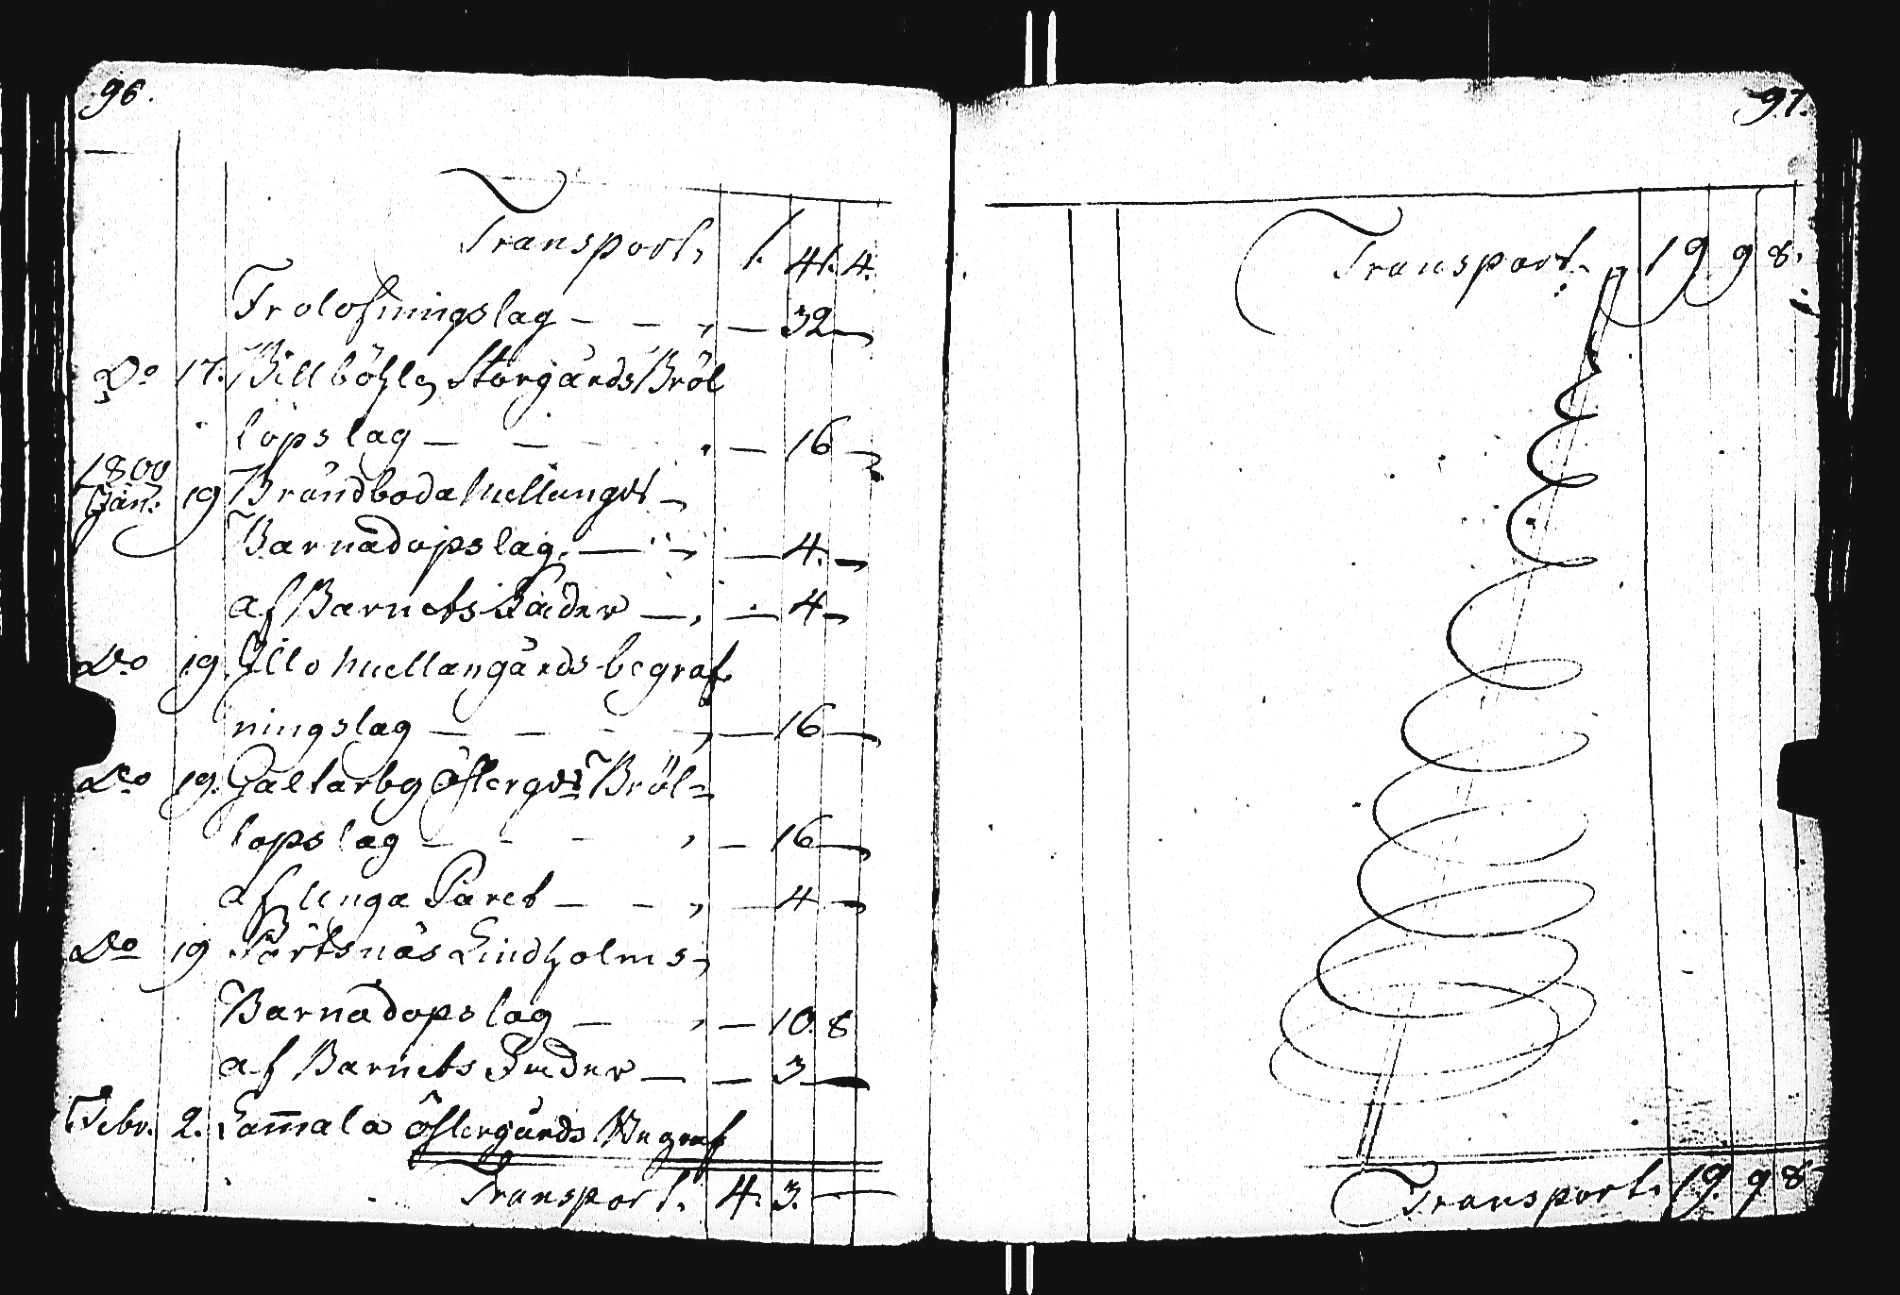 96.
Transport, 1. 41. 4.
Trolofningslag — — , — 32 —
Do 17. Billböhle Storgårds Bröl
löpslag — — — , — 16 —
1800
Jan: 19 Brändboda Mellangdt —
Barnadopslag. — , — 4. —
af Barnets Fader — , — 4 —
Do 19 Gillo Mellangårds begraf
ningslag — — — , — 16 —
Do 19. Galtarby Östergds Bröl=
lopslag — — — , — 16 —
af Unga Paret — — , — 4 —
Do 19 Pörtsnäs Lindholms,
Barnadopslag — , — 10. 8
af Barnets Fader — — 3 —
Febr. 2. Lam̅ala Östergårds Begraf
Transport. 4. 3. —
97.
Transport. 19 9 8.
Transport. 19. 9 8